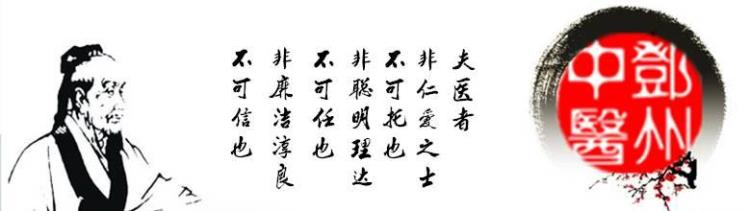 夫医者
非仁爱之士
不可托也
非聪明理达
不可任也
非廉洁淳良
不可信也
鄧州
中醫